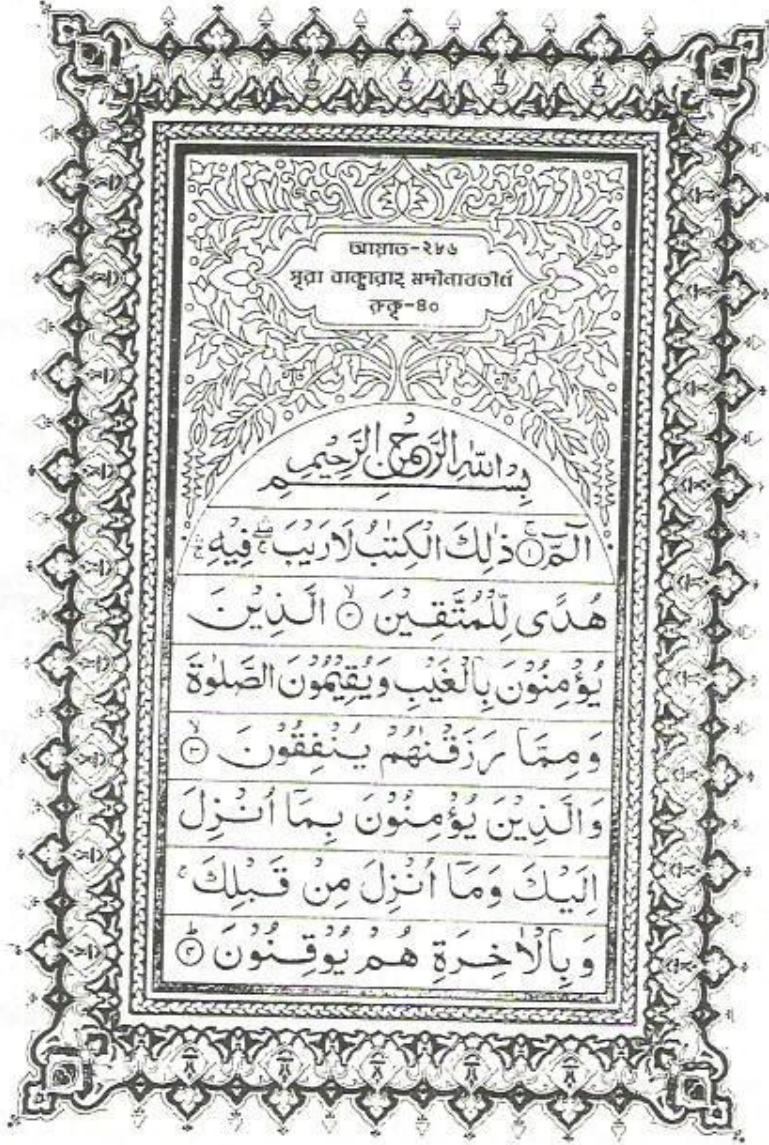 আয়াত-২৮৬
সূরা বাক্বারাহ্ মদীনাবতীর্ন
রুকু-৪০
بِسْمِ اللّٰهِ الرَّحْمٰنِ الرَّحِيْمِ
الٓمّٓ ۚ﴿۱﴾ ذٰلِكَ الْكِتٰبُ لَا رَيْبَ ۛۖۚ فِيْهِ ۛۚ
هُدًى لِّلْمُتَّقِيْنَ ۙ﴿۲﴾ الَّذِيْنَ
يُؤْمِنُوْنَ بِالْغَيْبِ وَيُقِيْمُوْنَ الصَّلٰوةَ
وَمِمَّا رَزَقْنٰهُمْ يُنْفِقُوْنَ ۙ﴿۳﴾
وَالَّذِيْنَ يُؤْمِنُوْنَ بِمَآ اُنْزِلَ
اِلَيْكَ وَمَآ اُنْزِلَ مِنْ قَبْلِكَ ۚ
وَبِالْاٰخِرَةِ هُمْ يُوْقِنُوْنَ ؕ﴿۴﴾